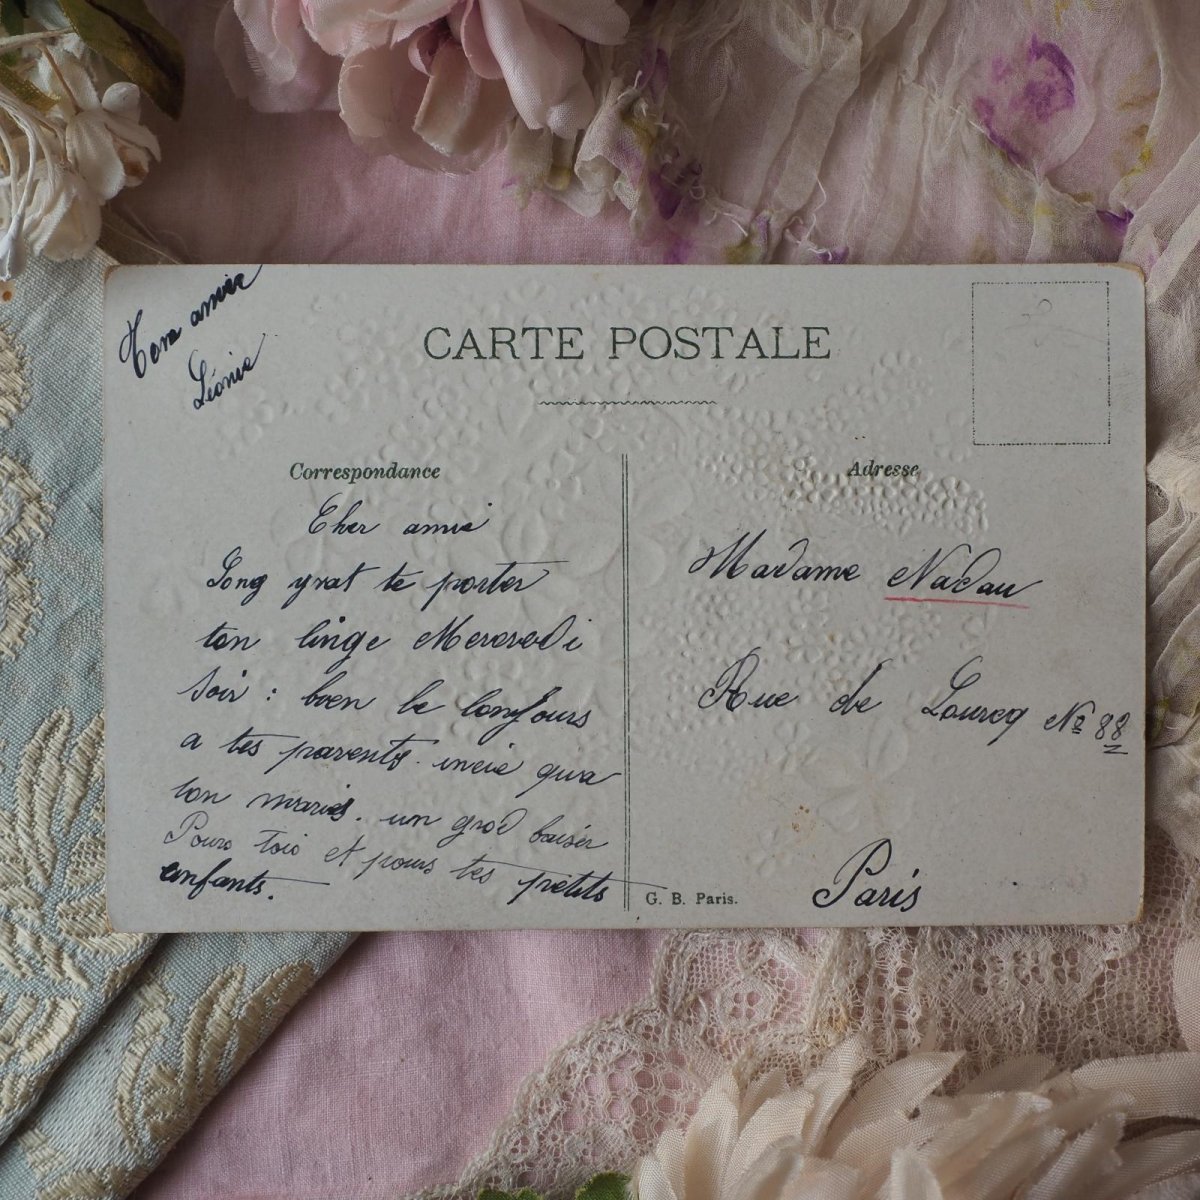 Tona amie
Léonie
CARTE POSTALE
Correspondance
Adresse
Cher amie
Jong yrat te porter
ton linge Mercredi
Soir : boen le bonjours
a tes parents. incie qua
ton maries. un grod baiser
Pour toio et pours tes pretits
enfants.
Madame Nadau
Rue de Lourcq No 88
Paris
G. B. Paris.